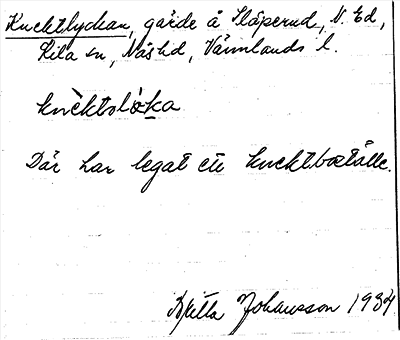 Knektlyckan, gärde å Släperud, N. Ed,
Kila sn, Näs hd, Värmlands l.
knèktolø̀ka
Där har legat ett knektboställe.
Johansson 1934